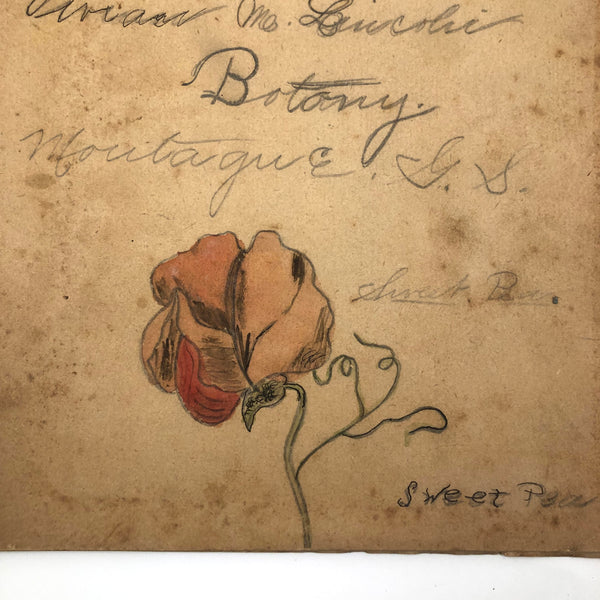 Vivian M. Lincoln
Botany.
Montague. G. S.
Sweet Pea.
Sweet Pea